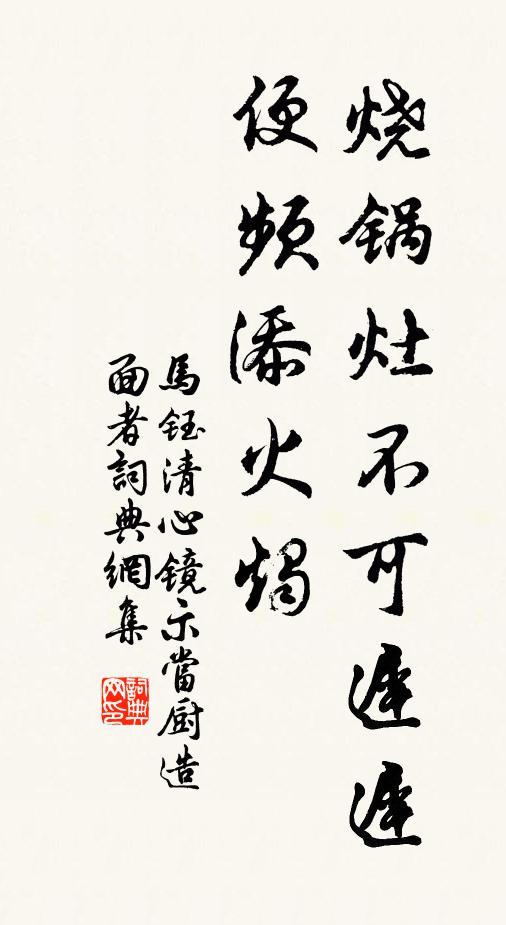 烧锅灶不可遲遲
便频添火燭
馬钰清心镜示當厨造
面者詞典網集
詞典网印